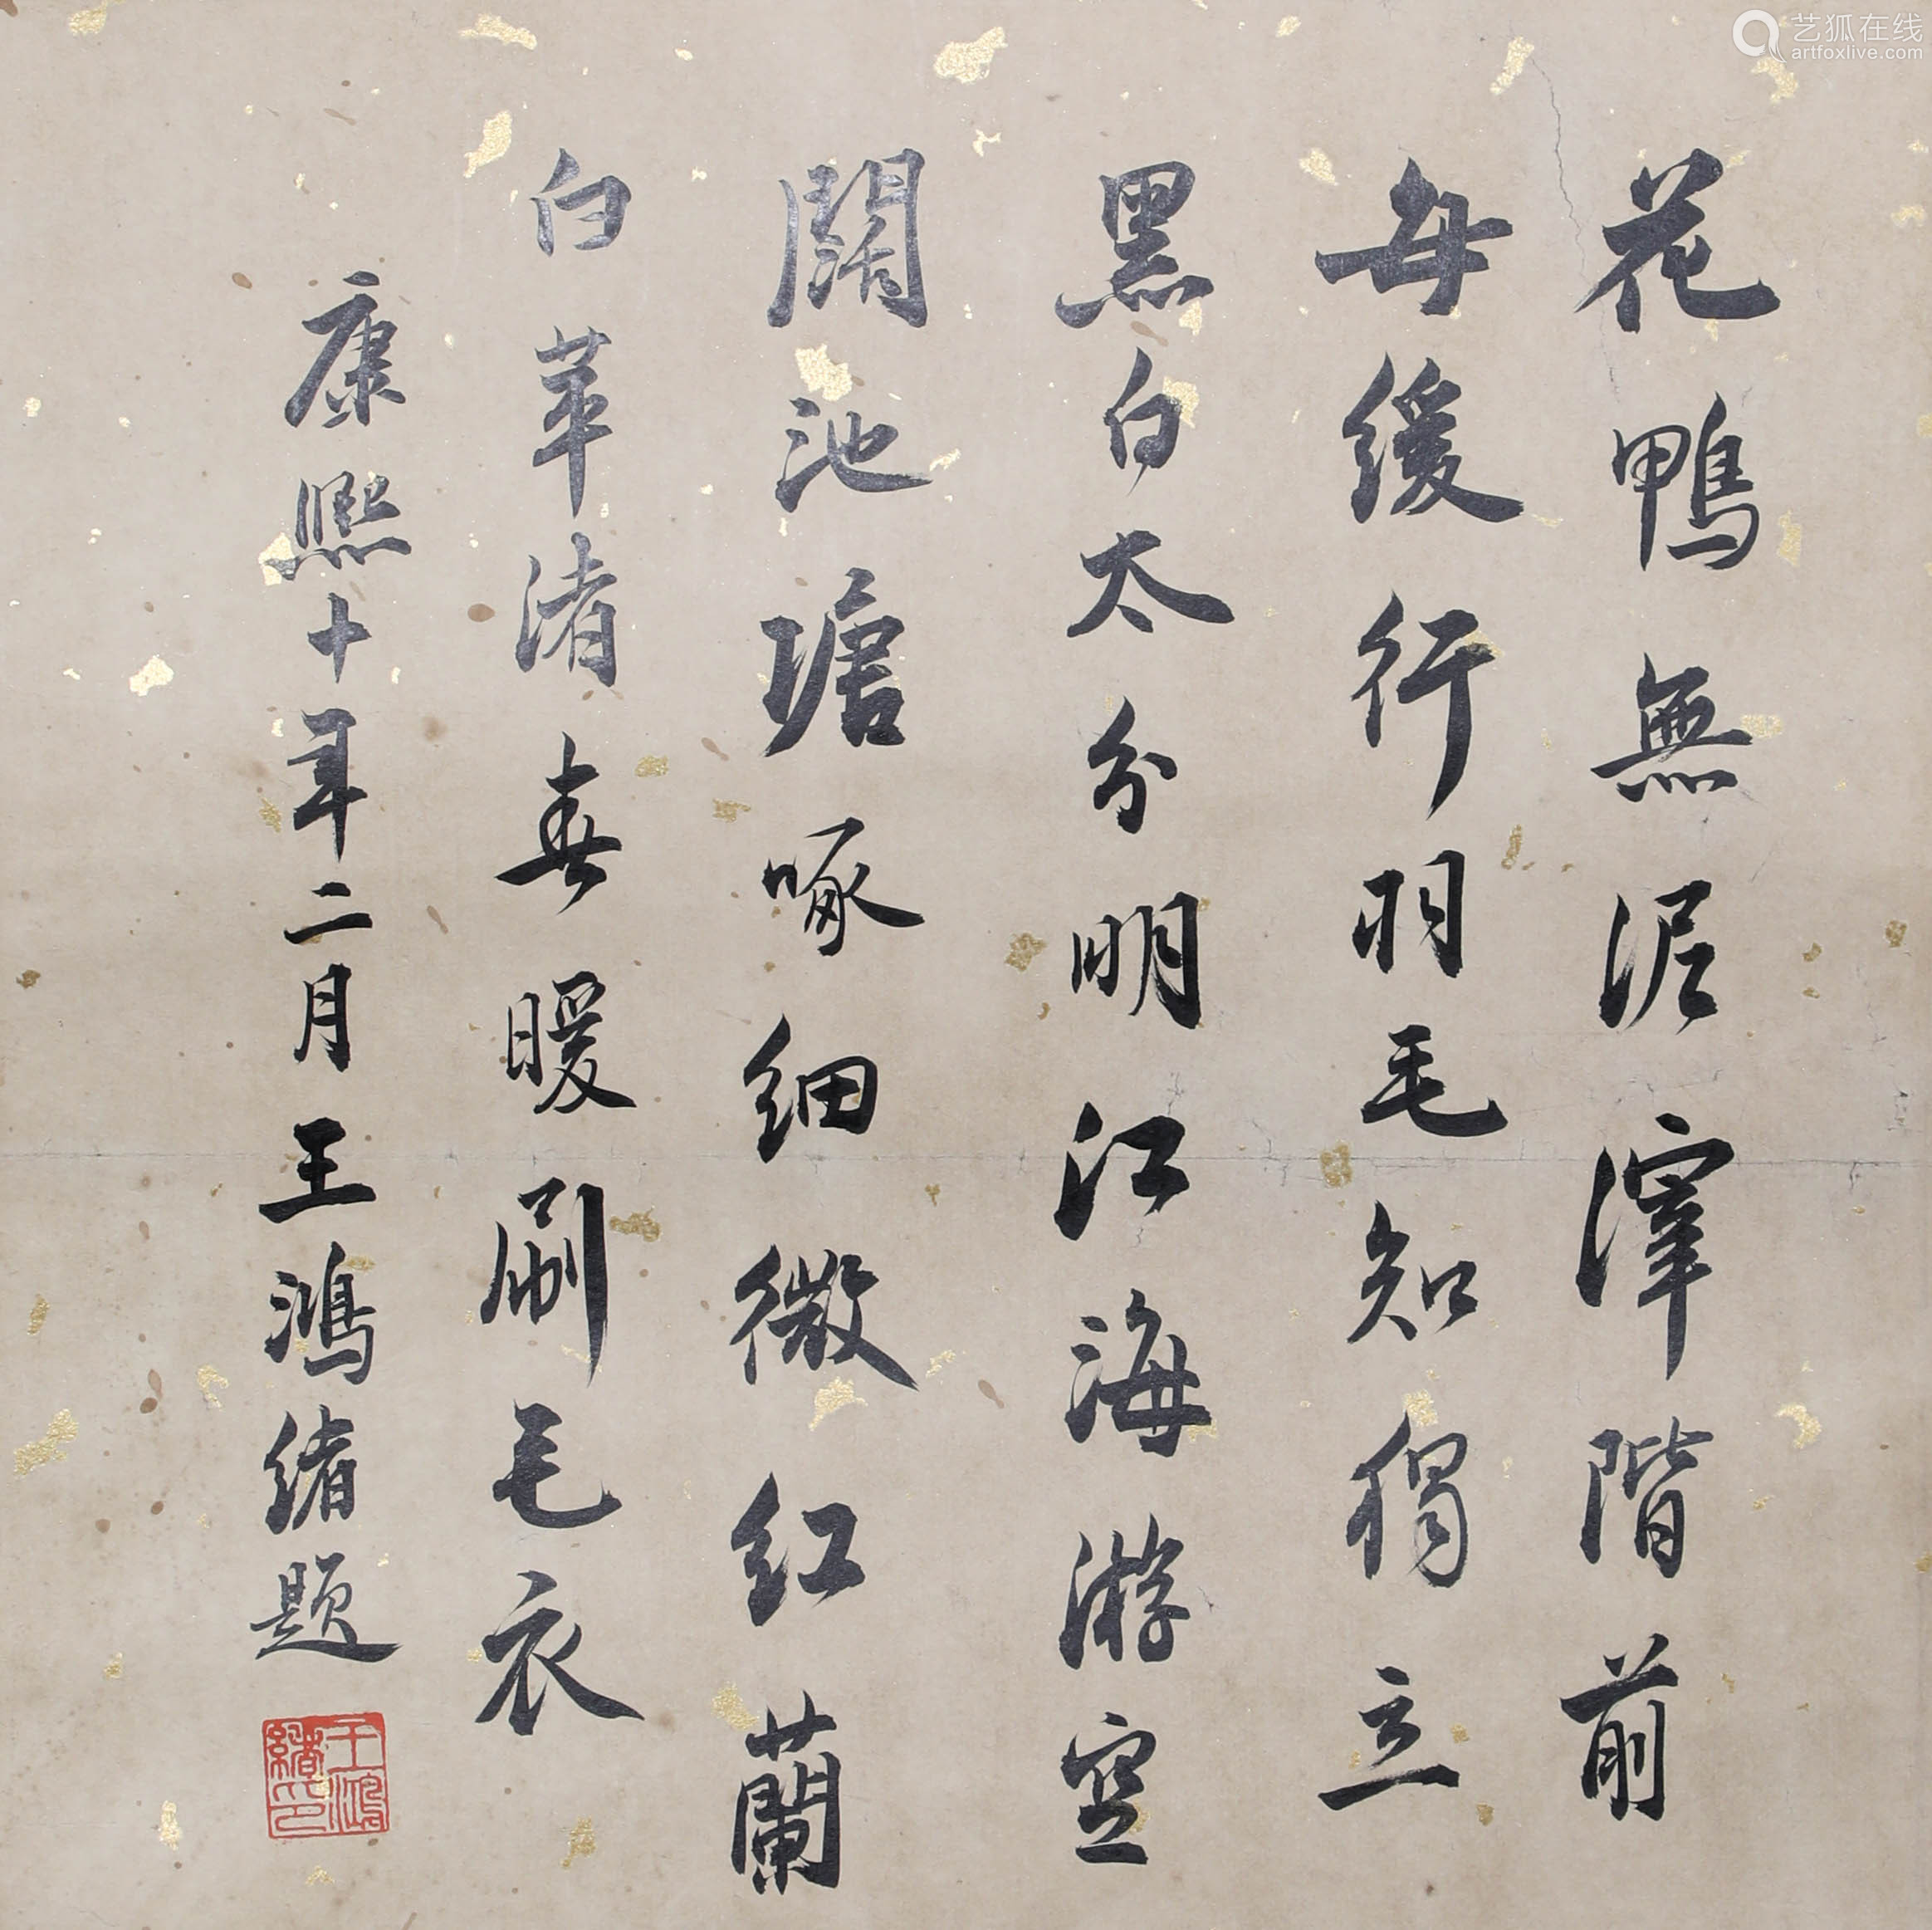 花鴨無泥滓階前
每緩行羽毛知獨立
黑白太分明江海游空
闊池塘啄細微紅蘭
白苹渚春暖刷毛衣
康熙十年二月王鴻緒題
王鴻緒印
艺狐在线
artfoxlive.com